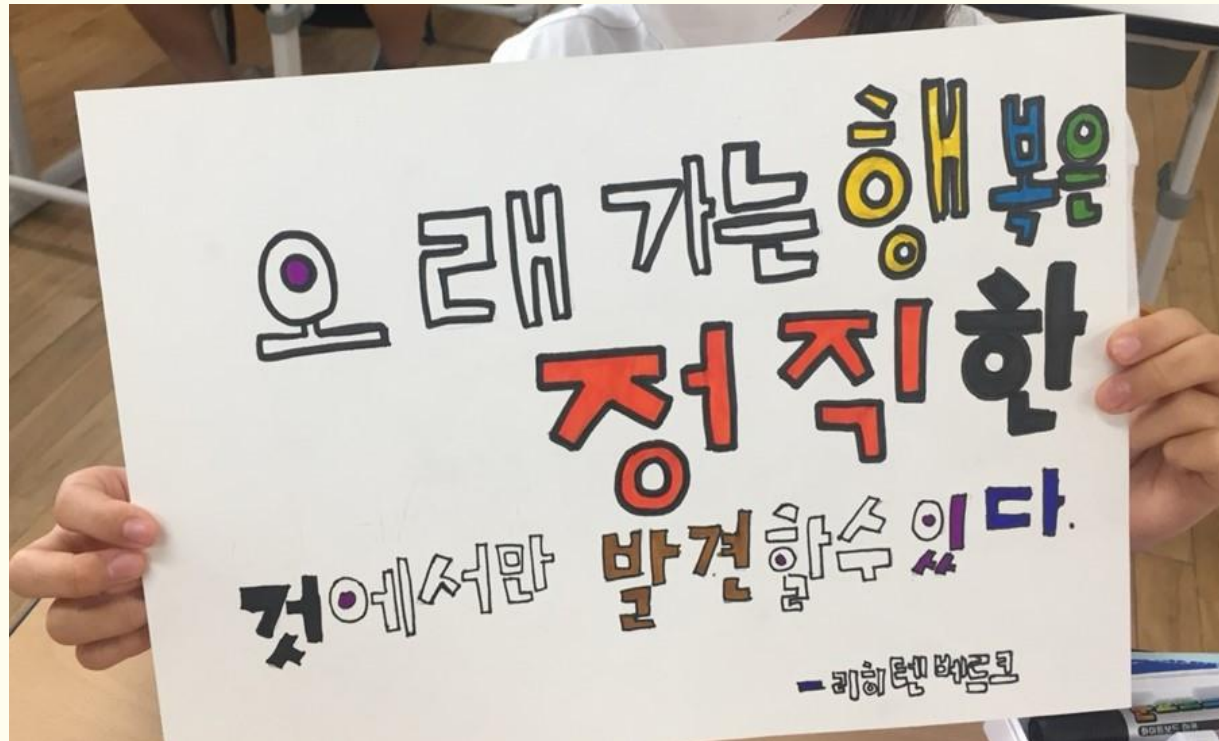 오래가는 행복은
정직한
것에서만 발견할수있다.
-리히텐베르크